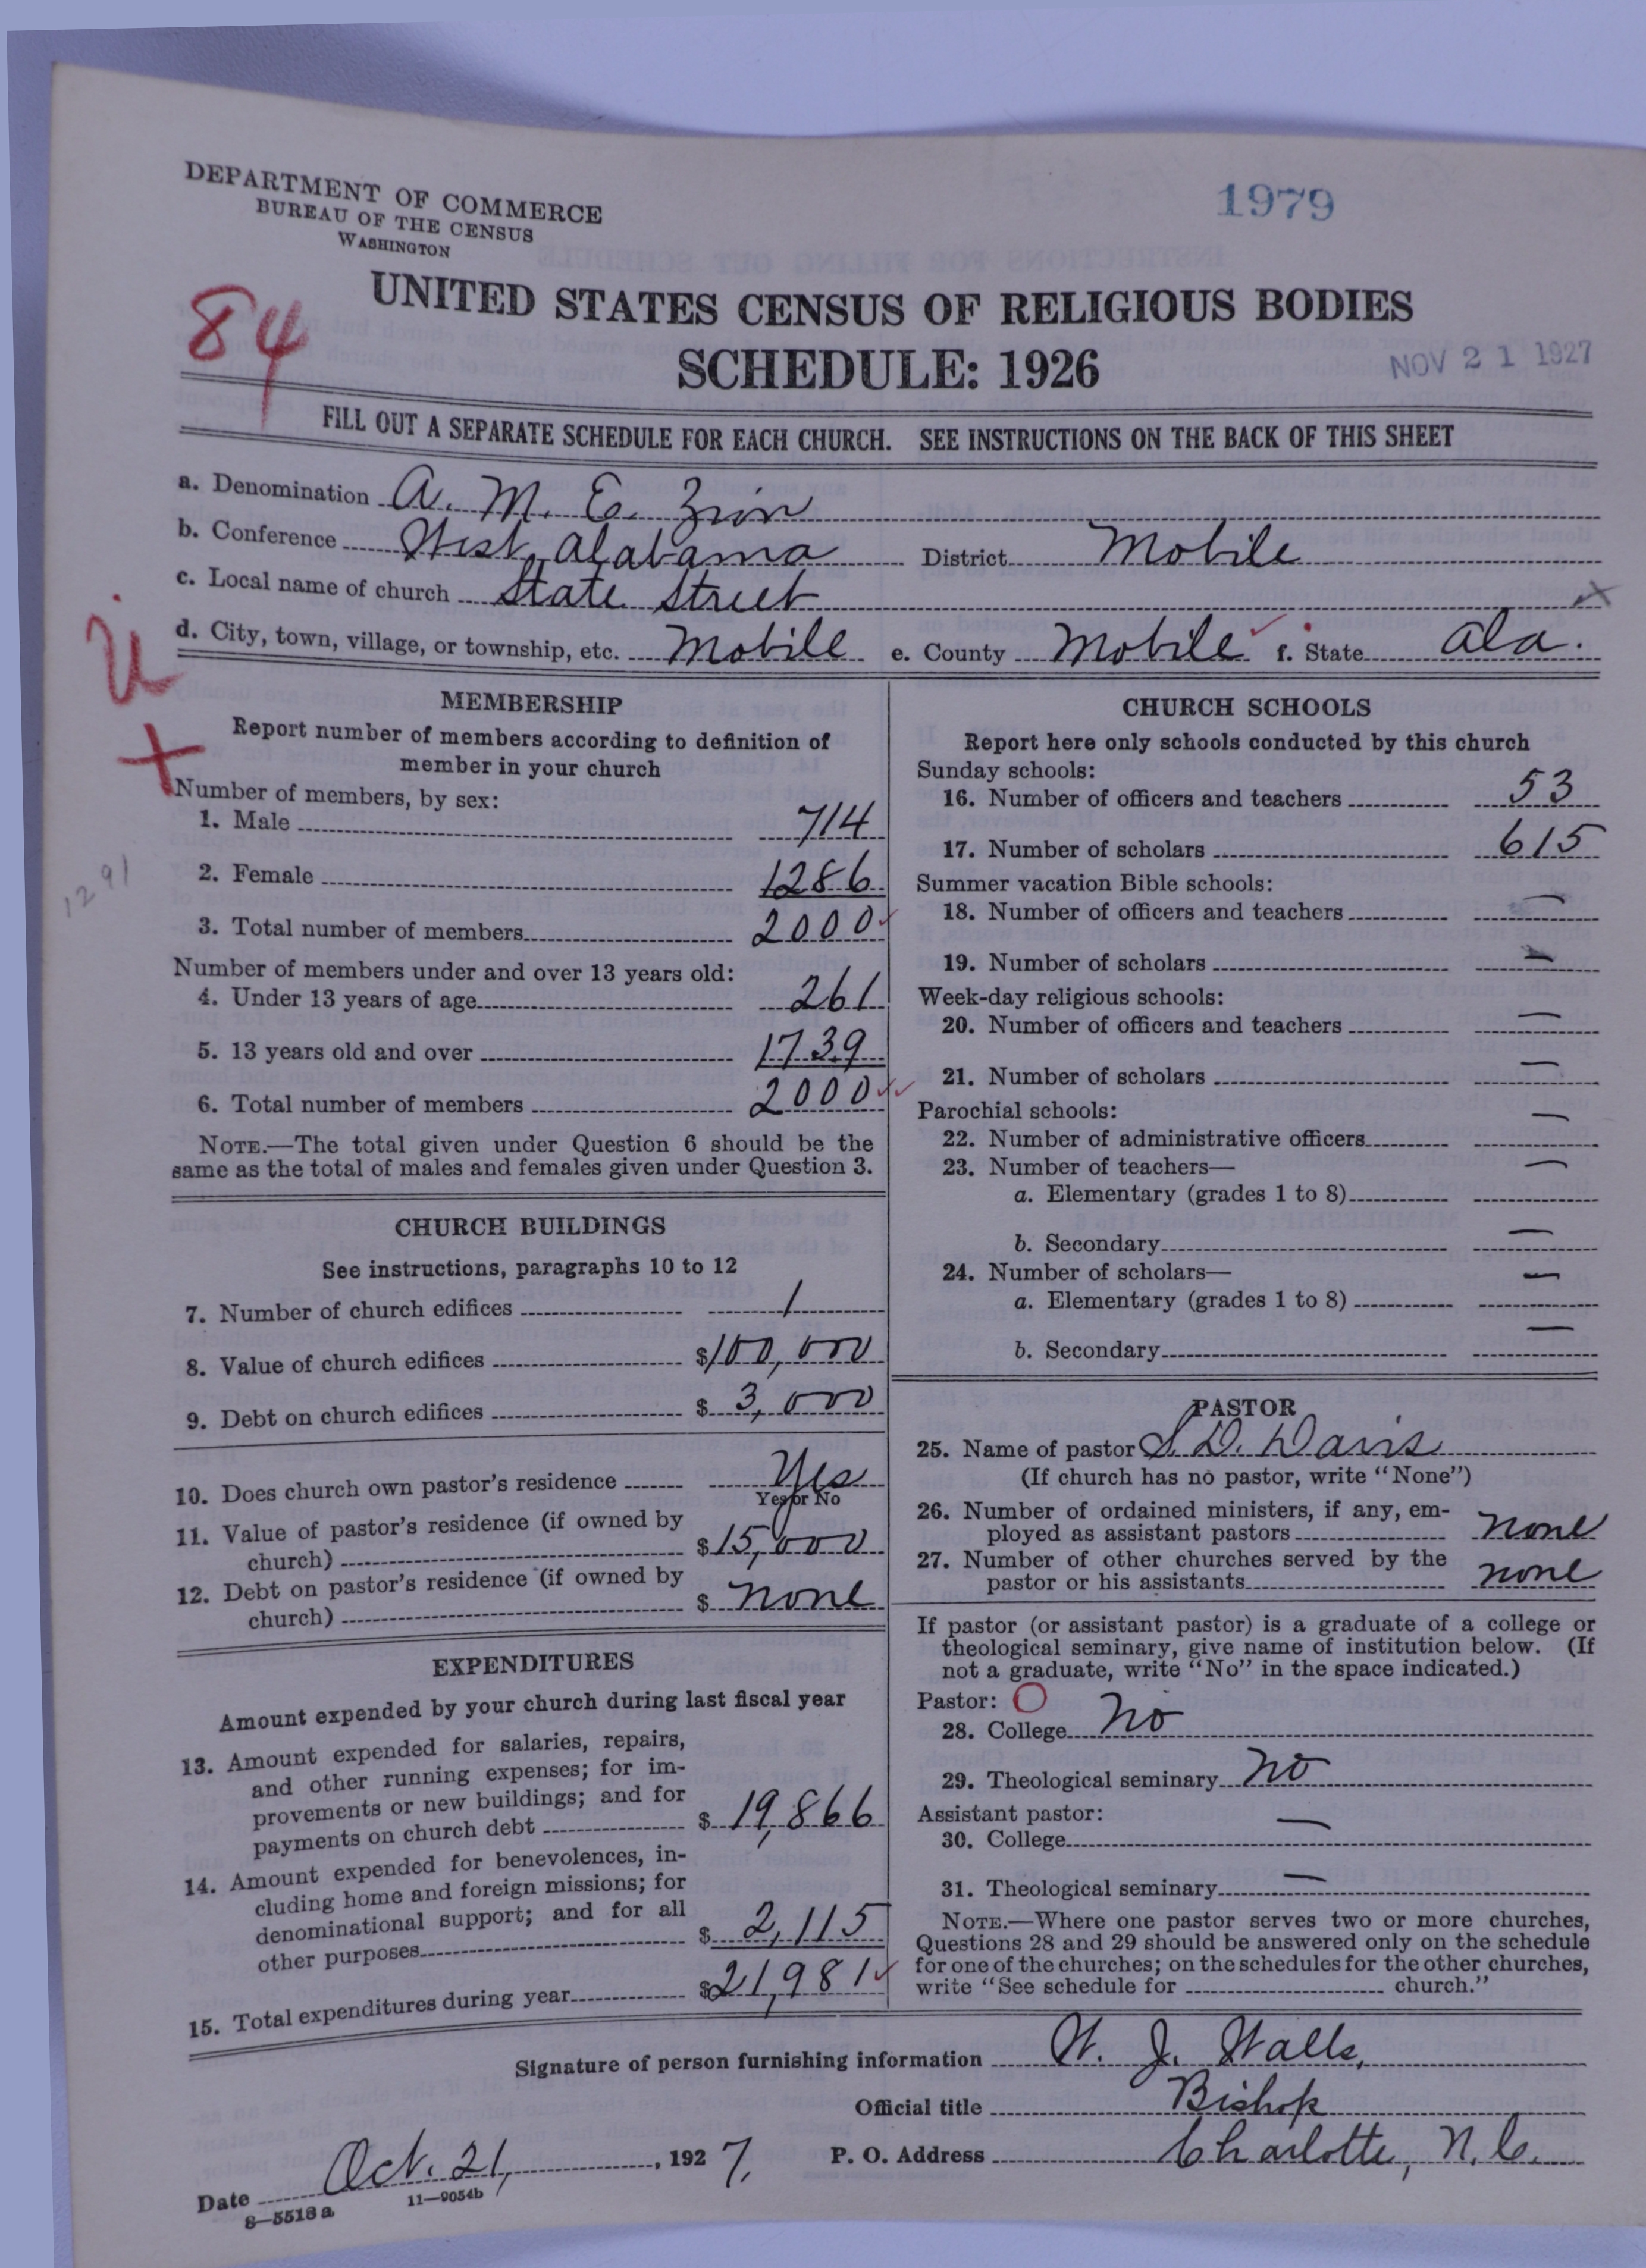 DEPARTMENT OF COMMERCE
BUREAU OF THE CENSUS
WASHINGTON
1979
84
UNITED STATES CENSUS OF RELIGIOUS BODIES
SCHEDULE: 1926
NOV 21 1927
FILL OUT A SEPARATE SCHEDULE FOR EACH CHURCH. SEE INSTRUCTIONS ON THE BACK OF THIS SHEET
a. Denomination A. M. E. Zion
b. Conference West Alabama District Mobile
c. Local name of church State Street
d. City, town, village, or township, etc. Mobile e. County Mobile f. State Ala.
MEMBERSHIP
Report number of members according to definition of
member in your church
Number of members, by sex:
1. Male 714
2. Female 1286
1291
3. Total number of members 2000
Number of members under and over 13 years old:
4. Under 13 years of age 261
5. 13 years old and over 1739
6. Total number of members 2000
NOTE.—The total given under Question 6 should be the
same as the total of males and females given under Question 3.
CHURCH BUILDINGS
See instructions, paragraphs 10 to 12
7. Number of church edifices 1
8. Value of church edifices $100,000
9. Debt on church edifices $ 3,000
10. Does church own pastor's residence Yes
Yes or No
11. Value of pastor's residence (if owned by
church) $15,000
12. Debt on pastor's residence (if owned by
church) $ none
EXPENDITURES
Amount expended by your church during last fiscal year
13. Amount expended for salaries, repairs,
and other running expenses; for im-
provements or new buildings; and for
payments on church debt $ 19,866
14. Amount expended for benevolences, in-
cluding home and foreign missions; for
denominational support; and for all
other purposes $ 2,115
15. Total expenditures during year $21,981
CHURCH SCHOOLS
Report here only schools conducted by this church
Sunday schools:
16. Number of officers and teachers 53
17. Number of scholars 615
Summer vacation Bible schools:
18. Number of officers and teachers —
19. Number of scholars —
Week-day religious schools:
20. Number of officers and teachers —
21. Number of scholars —
Parochial schools:
22. Number of administrative officers —
23. Number of teachers—
a. Elementary (grades 1 to 8) —
b. Secondary —
24. Number of scholars—
a. Elementary (grades 1 to 8) —
b. Secondary —
PASTOR
25. Name of pastor S. D. Davis
(If church has no pastor, write "None")
26. Number of ordained ministers, if any, em-
ployed as assistant pastors none
27. Number of other churches served by the
pastor or his assistants none
If pastor (or assistant pastor) is a graduate of a college or
theological seminary, give name of institution below. (If
not a graduate, write "No" in the space indicated.)
Pastor: O
28. College No
29. Theological seminary No
Assistant pastor:
30. College —
31. Theological seminary —
NOTE.—Where one pastor serves two or more churches,
Questions 28 and 29 should be answered only on the schedule
for one of the churches; on the schedules for the other churches,
write "See schedule for church."
Signature of person furnishing information W. J. Walls,
Official title Bishop
Date Oct. 21, 1927. P. O. Address Charlotte, N.C.
8—5518a 11—9054b